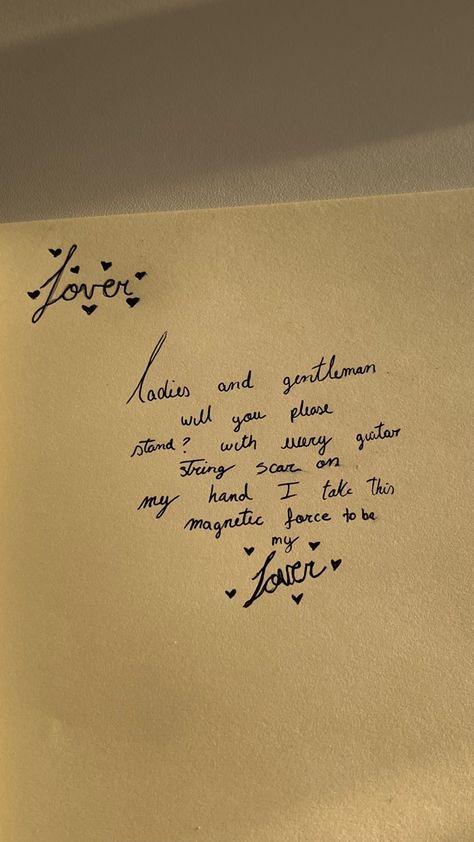 Lover
Ladies and gentleman
will you please
stand? with every guitar
string scar on
my hand I take this
magnetic force to be
my
Lover